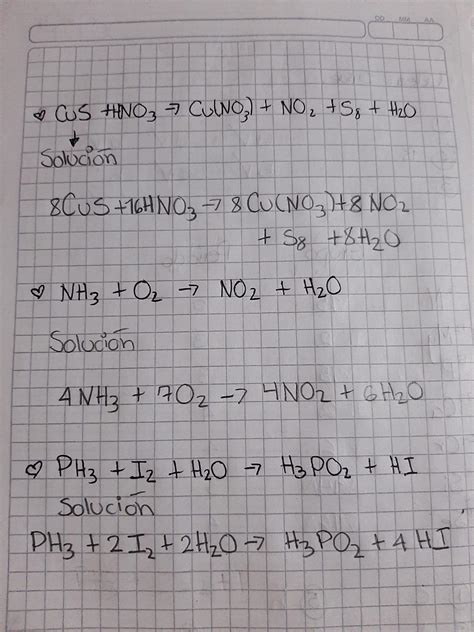 DD MIA AA
♡ CuS + HNO3 → Cu(NO3) + NO2 + S8 + H2O
Solución
8CuS + 16HNO3 → 8Cu(NO3) + 8 NO2
+ S8 + 8H2O
♡ NH3 + O2 → NO2 + H2O
Solución
4NH3 + 7O2 → 4NO2 + 6H2O
♡ PH3 + I2 + H2O → H3PO2 + HI
Solución
PH3 + 2I2 + 2H2O → H3PO2 + 4 HI